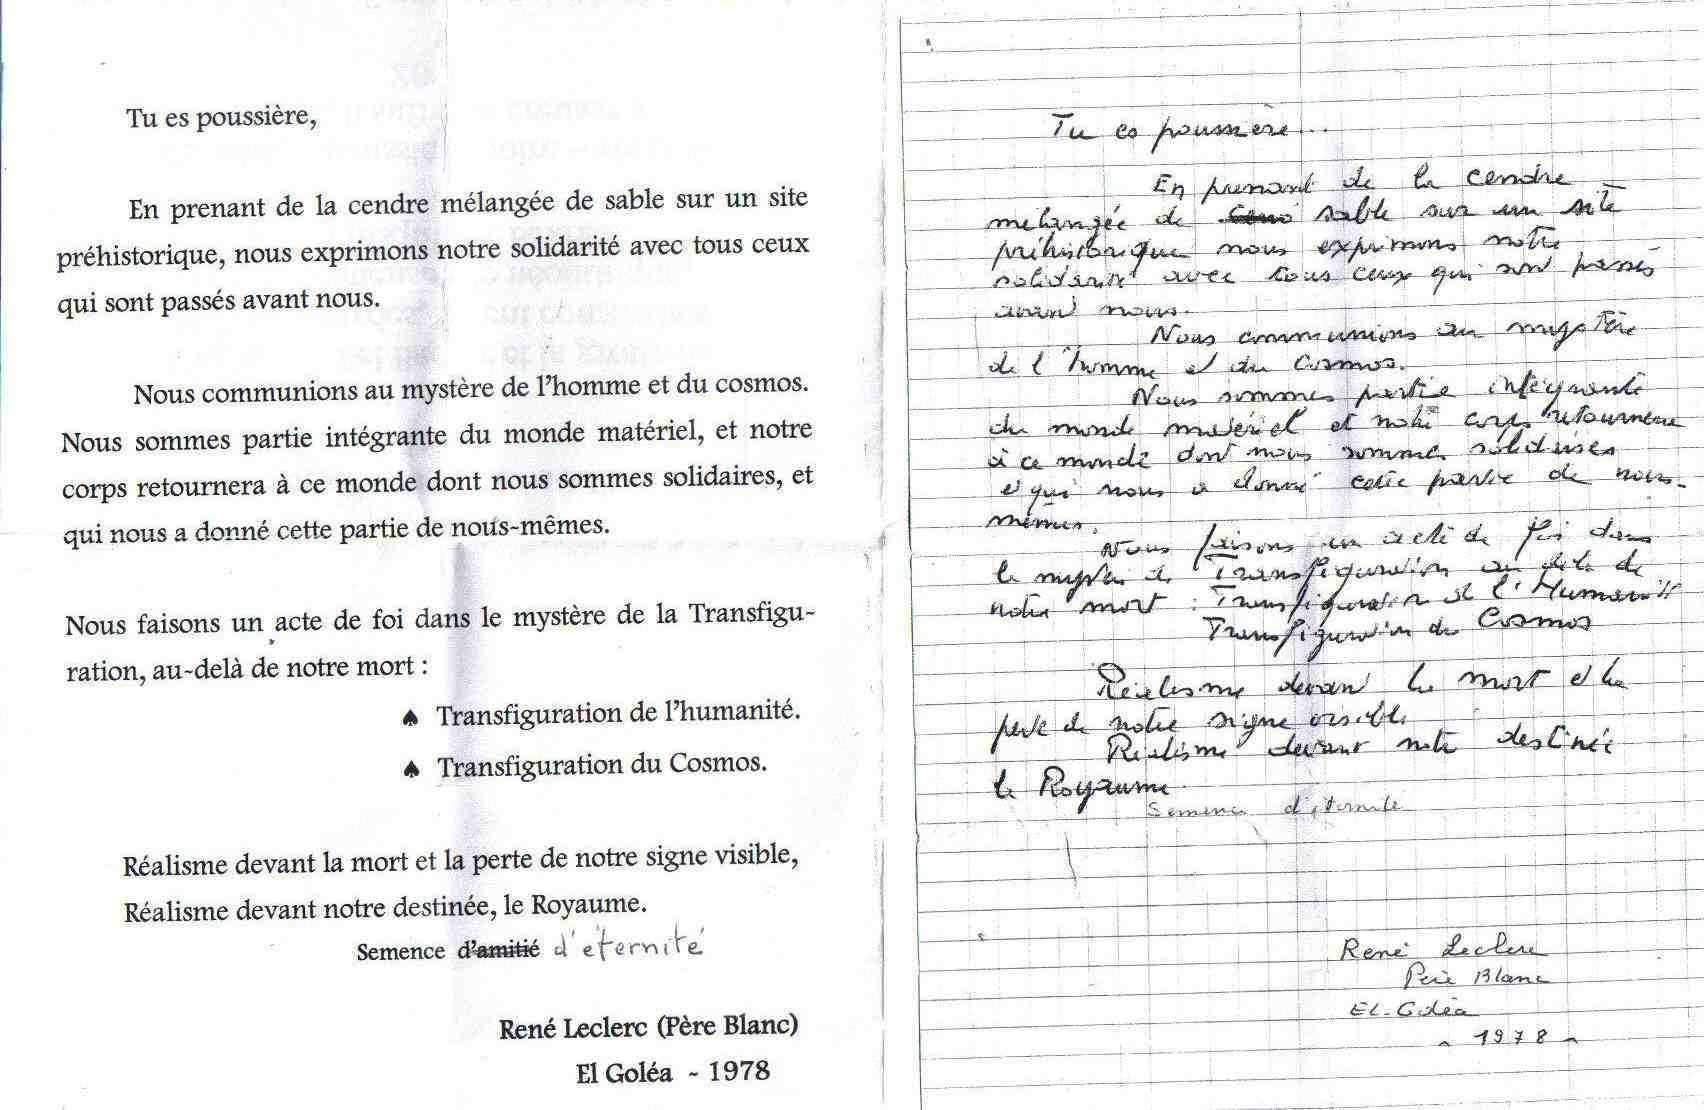 Tu es poussière,
En prenant de la cendre mélangée de sable sur un site
préhistorique, nous exprimons notre solidarité avec tous ceux
qui sont passés avant nous.
Nous communions au mystère de l'homme et du cosmos.
Nous sommes partie intégrante du monde matériel, et notre
corps retournera à ce monde dont nous sommes solidaires, et
qui nous a donné cette partie de nous-mêmes.
Nous faisons un acte de foi dans le mystère de la Transfigu-
ration, au-delà de notre mort :
♠ Transfiguration de l'humanité.
♠ Transfiguration du Cosmos.
Réalisme devant la mort et la perte de notre signe visible,
Réalisme devant notre destinée, le Royaume.
Semence d'amitié d'éternité
René Leclerc (Père Blanc)
El Goléa ~ 1978
Tu es poussière...
En prenant de la cendre
mélangée de sable sur un site
préhistorique nous exprimons notre
solidarité avec tous ceux qui sont passés
avant nous.
Nous communions au mystère
de l'homme et du Cosmos.
Nous sommes partie intégrante
du monde matériel et notre corps retournera
à ce monde dont nous sommes solidaires
et qui nous a donné cette partie de nous-
mêmes.
Nous faisons un acte de foi dans
le mystère de Transfiguration au delà de
notre mort : Transfiguration de l'Humanité
Transfiguration du Cosmos
Réalisme devant la mort et la
perte de notre signe visible
Réalisme devant notre destinée
le Royaume
Semence d'éternité
René Leclerc
Père Blanc
EL-Goléa
~ 1978 ~